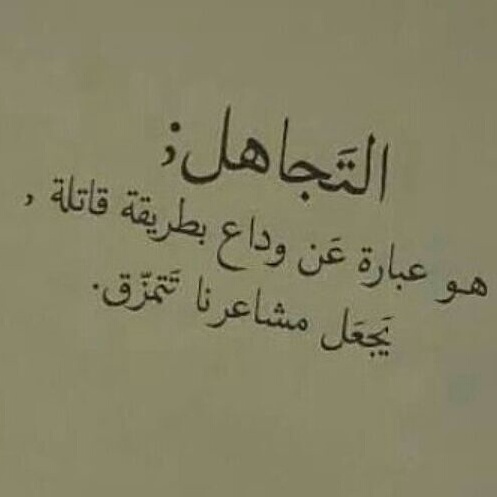 التَجاهل:
هو عبارة عَن وداع بطريقة قاتلة ,
يَجعَل مشاعرنا تَتمزّق.